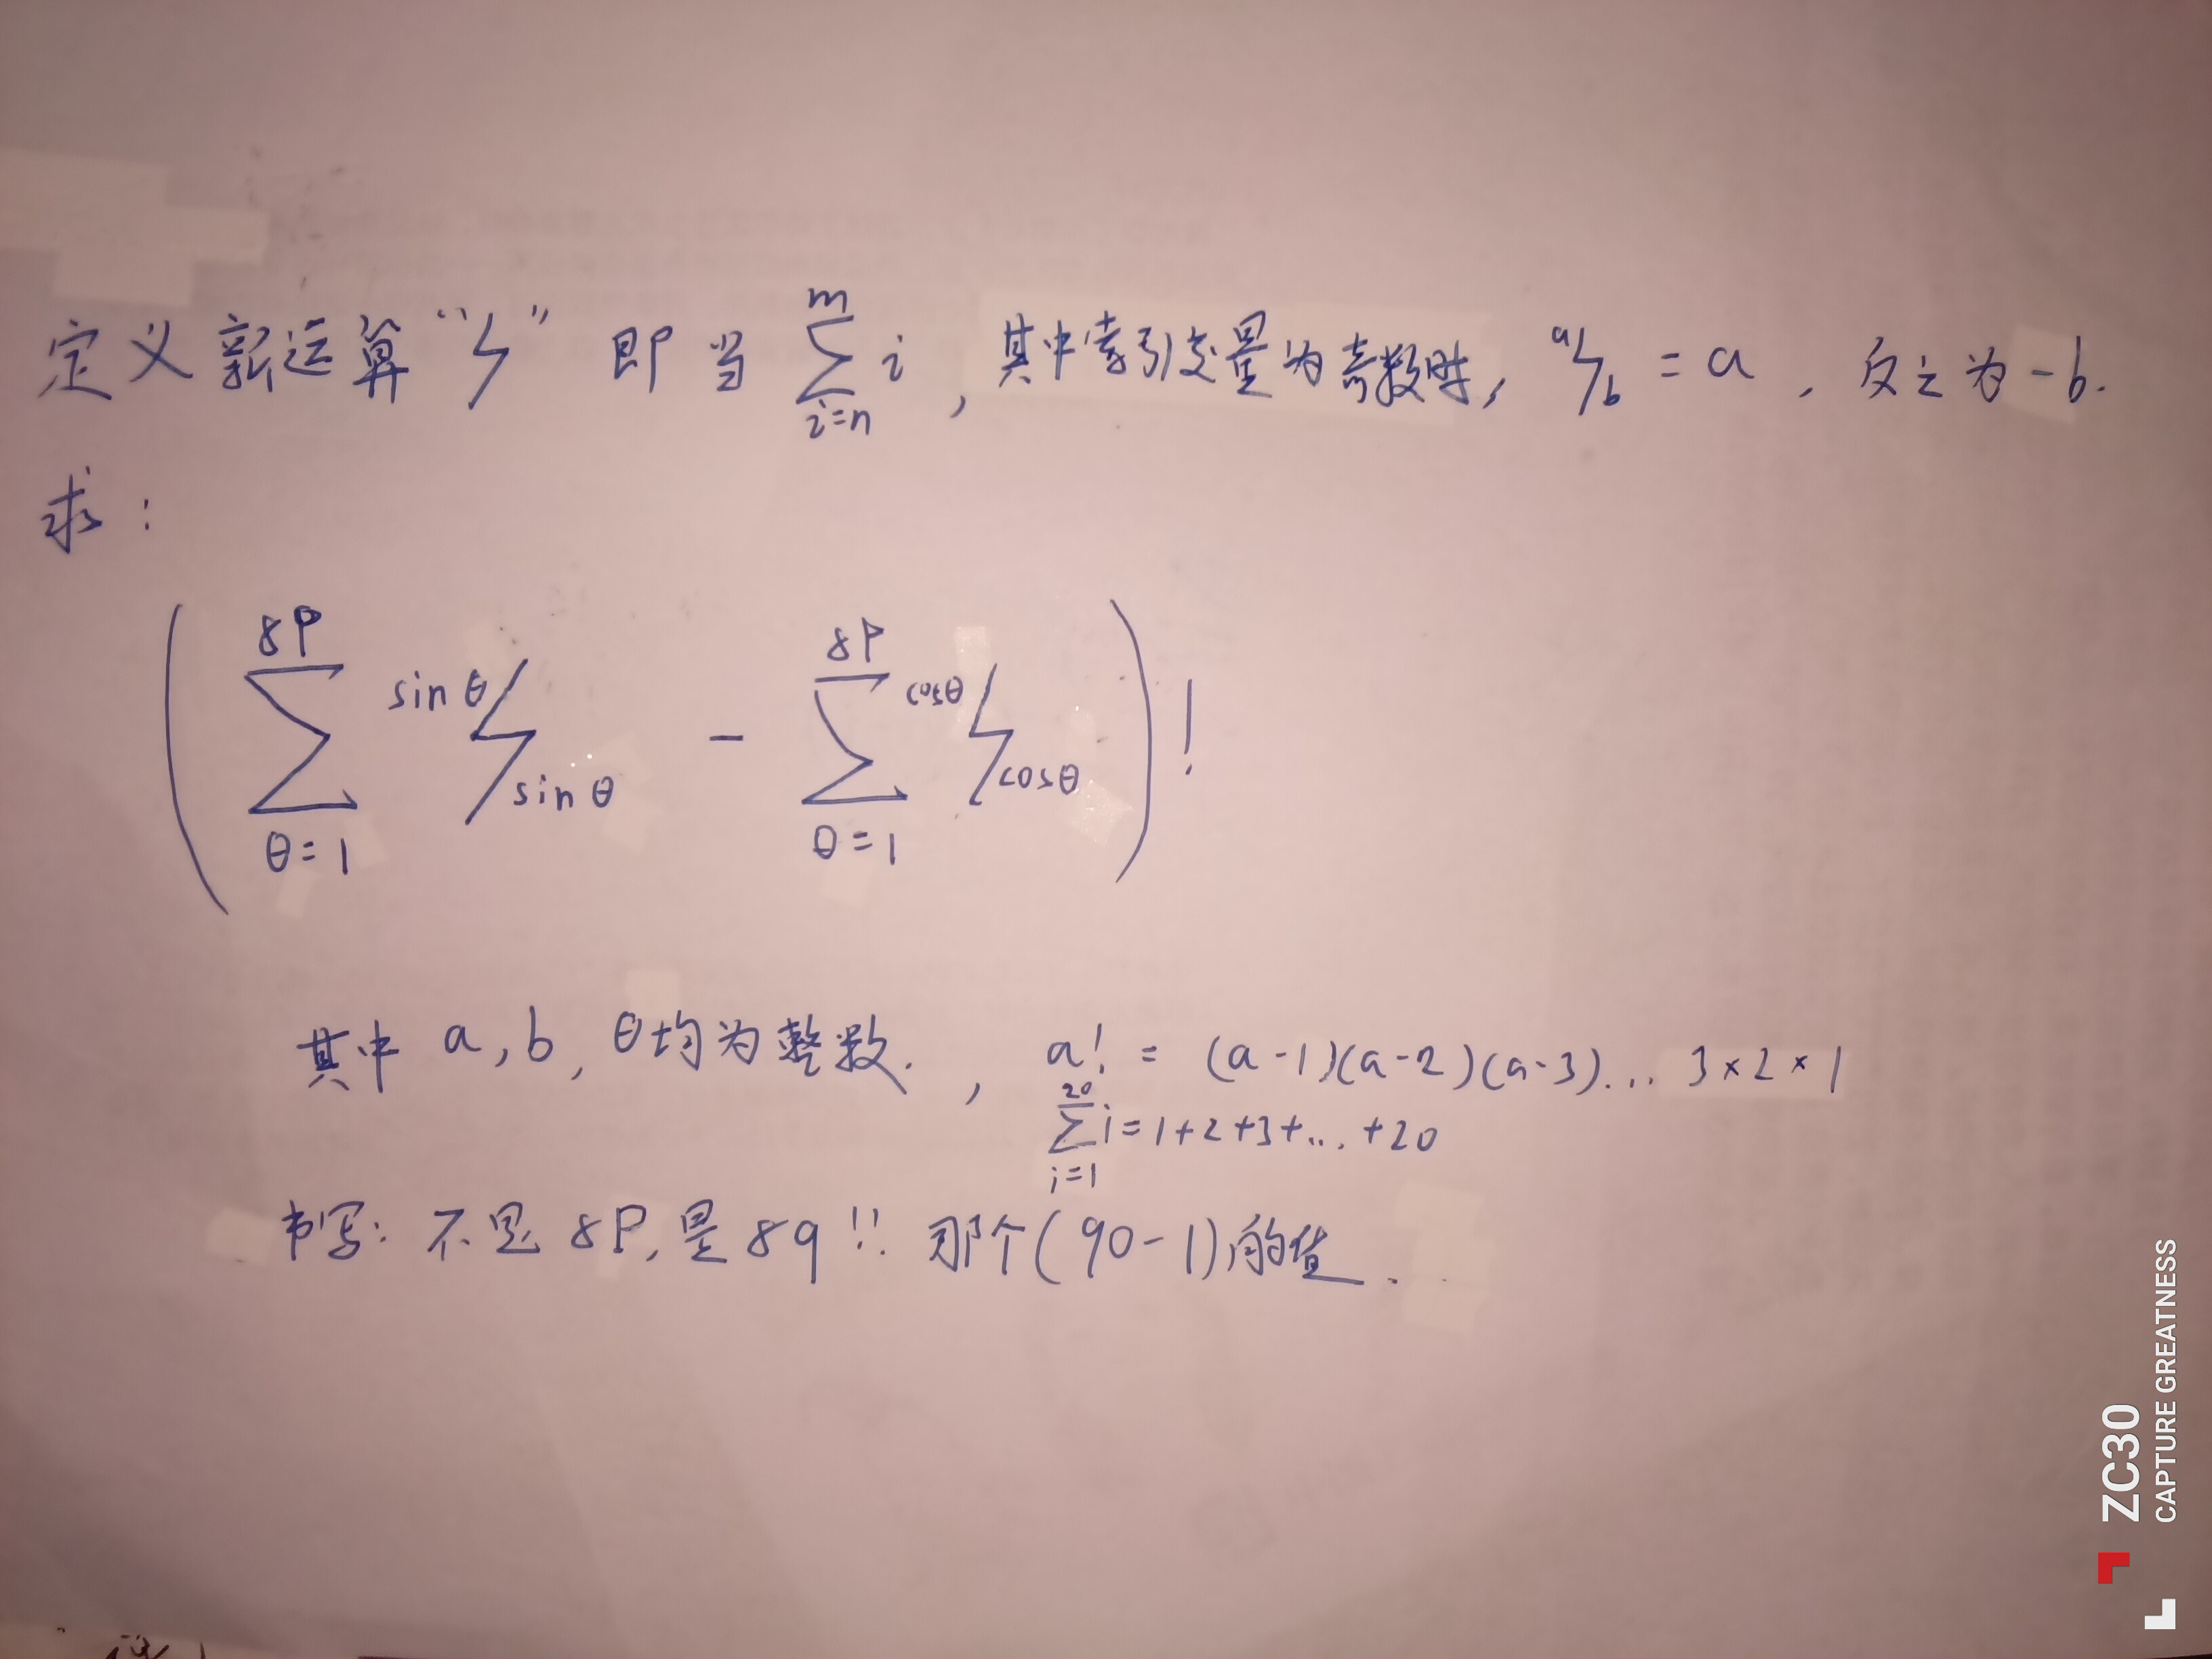 定义新运算“ϟ” 即当 \sum_{i=n}^{m} i , 其中索引变量为奇数时, ᵃϟ_b = a , 反之为 -b.
求:
( \sum_{θ=1}^{89} ^{sin θ}ϟ_{sin θ} - \sum_{θ=1}^{89} ^{cosθ}ϟ_{cosθ} ) !
其中 a, b, θ均为整数. , a! = (a-1)(a-2)(a-3)... 3×2×1
\sum_{i=1}^{20} i = 1+2+3+... +20
书写: 不是 8P, 是 89 !! 那个(90-1)的值.
ZC30
CAPTURE GREATNESS